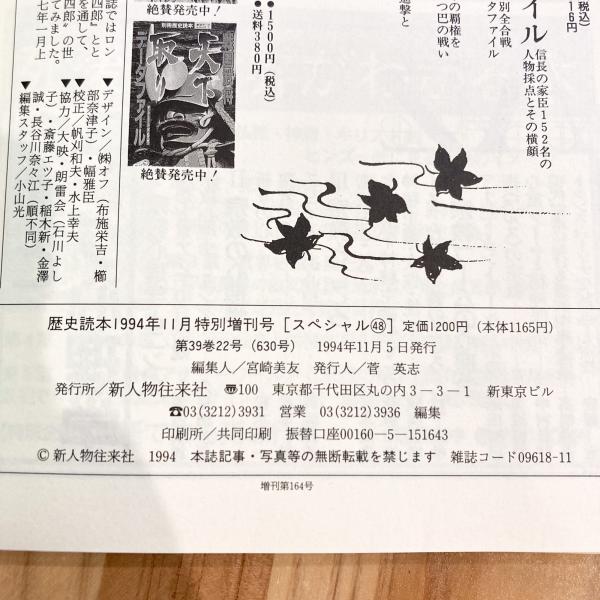 税込)
16円
イル
信長の家臣152名の
人物採点とその横顔
別全合戦
タファイル
の覇権を
つ巴の戦い
進撃と
●1500円(税込)
●送料380円
絶賛発売中!
別冊歴史読本
天下取り
データファイル
絶賛発売中!
誌ではロン
四郎』とと
を通して、
四郎”の世
てみました。
七年一月上
▼デザイン/㈱オフ(布施栄吉・櫛
部奈津子)・幅雅臣
▼校正/帆刈和夫・水上幸夫
▼協力/大映・朗雷会(石川よし
子)・斎藤エツ子・稲木新・金澤
誠・長谷川奈々江(順不同)
▼編集スタッフ/小山光
歴史読本1994年11月特別増刊号[スペシャル㊽]定価1200円(本体1165円)
第39巻22号(630号) 1994年11月5日発行
編集人/宮崎美友 発行人/菅 英志
発行所/新人物往来社 〠100 東京都千代田区丸の内3-3-1 新東京ビル
☎03(3212)3931 営業 03(3212)3936 編集
印刷所/共同印刷 振替口座00160-5-151643
© 新人物往来社 1994 本誌記事・写真等の無断転載を禁じます 雑誌コード09618-11
増刊第164号